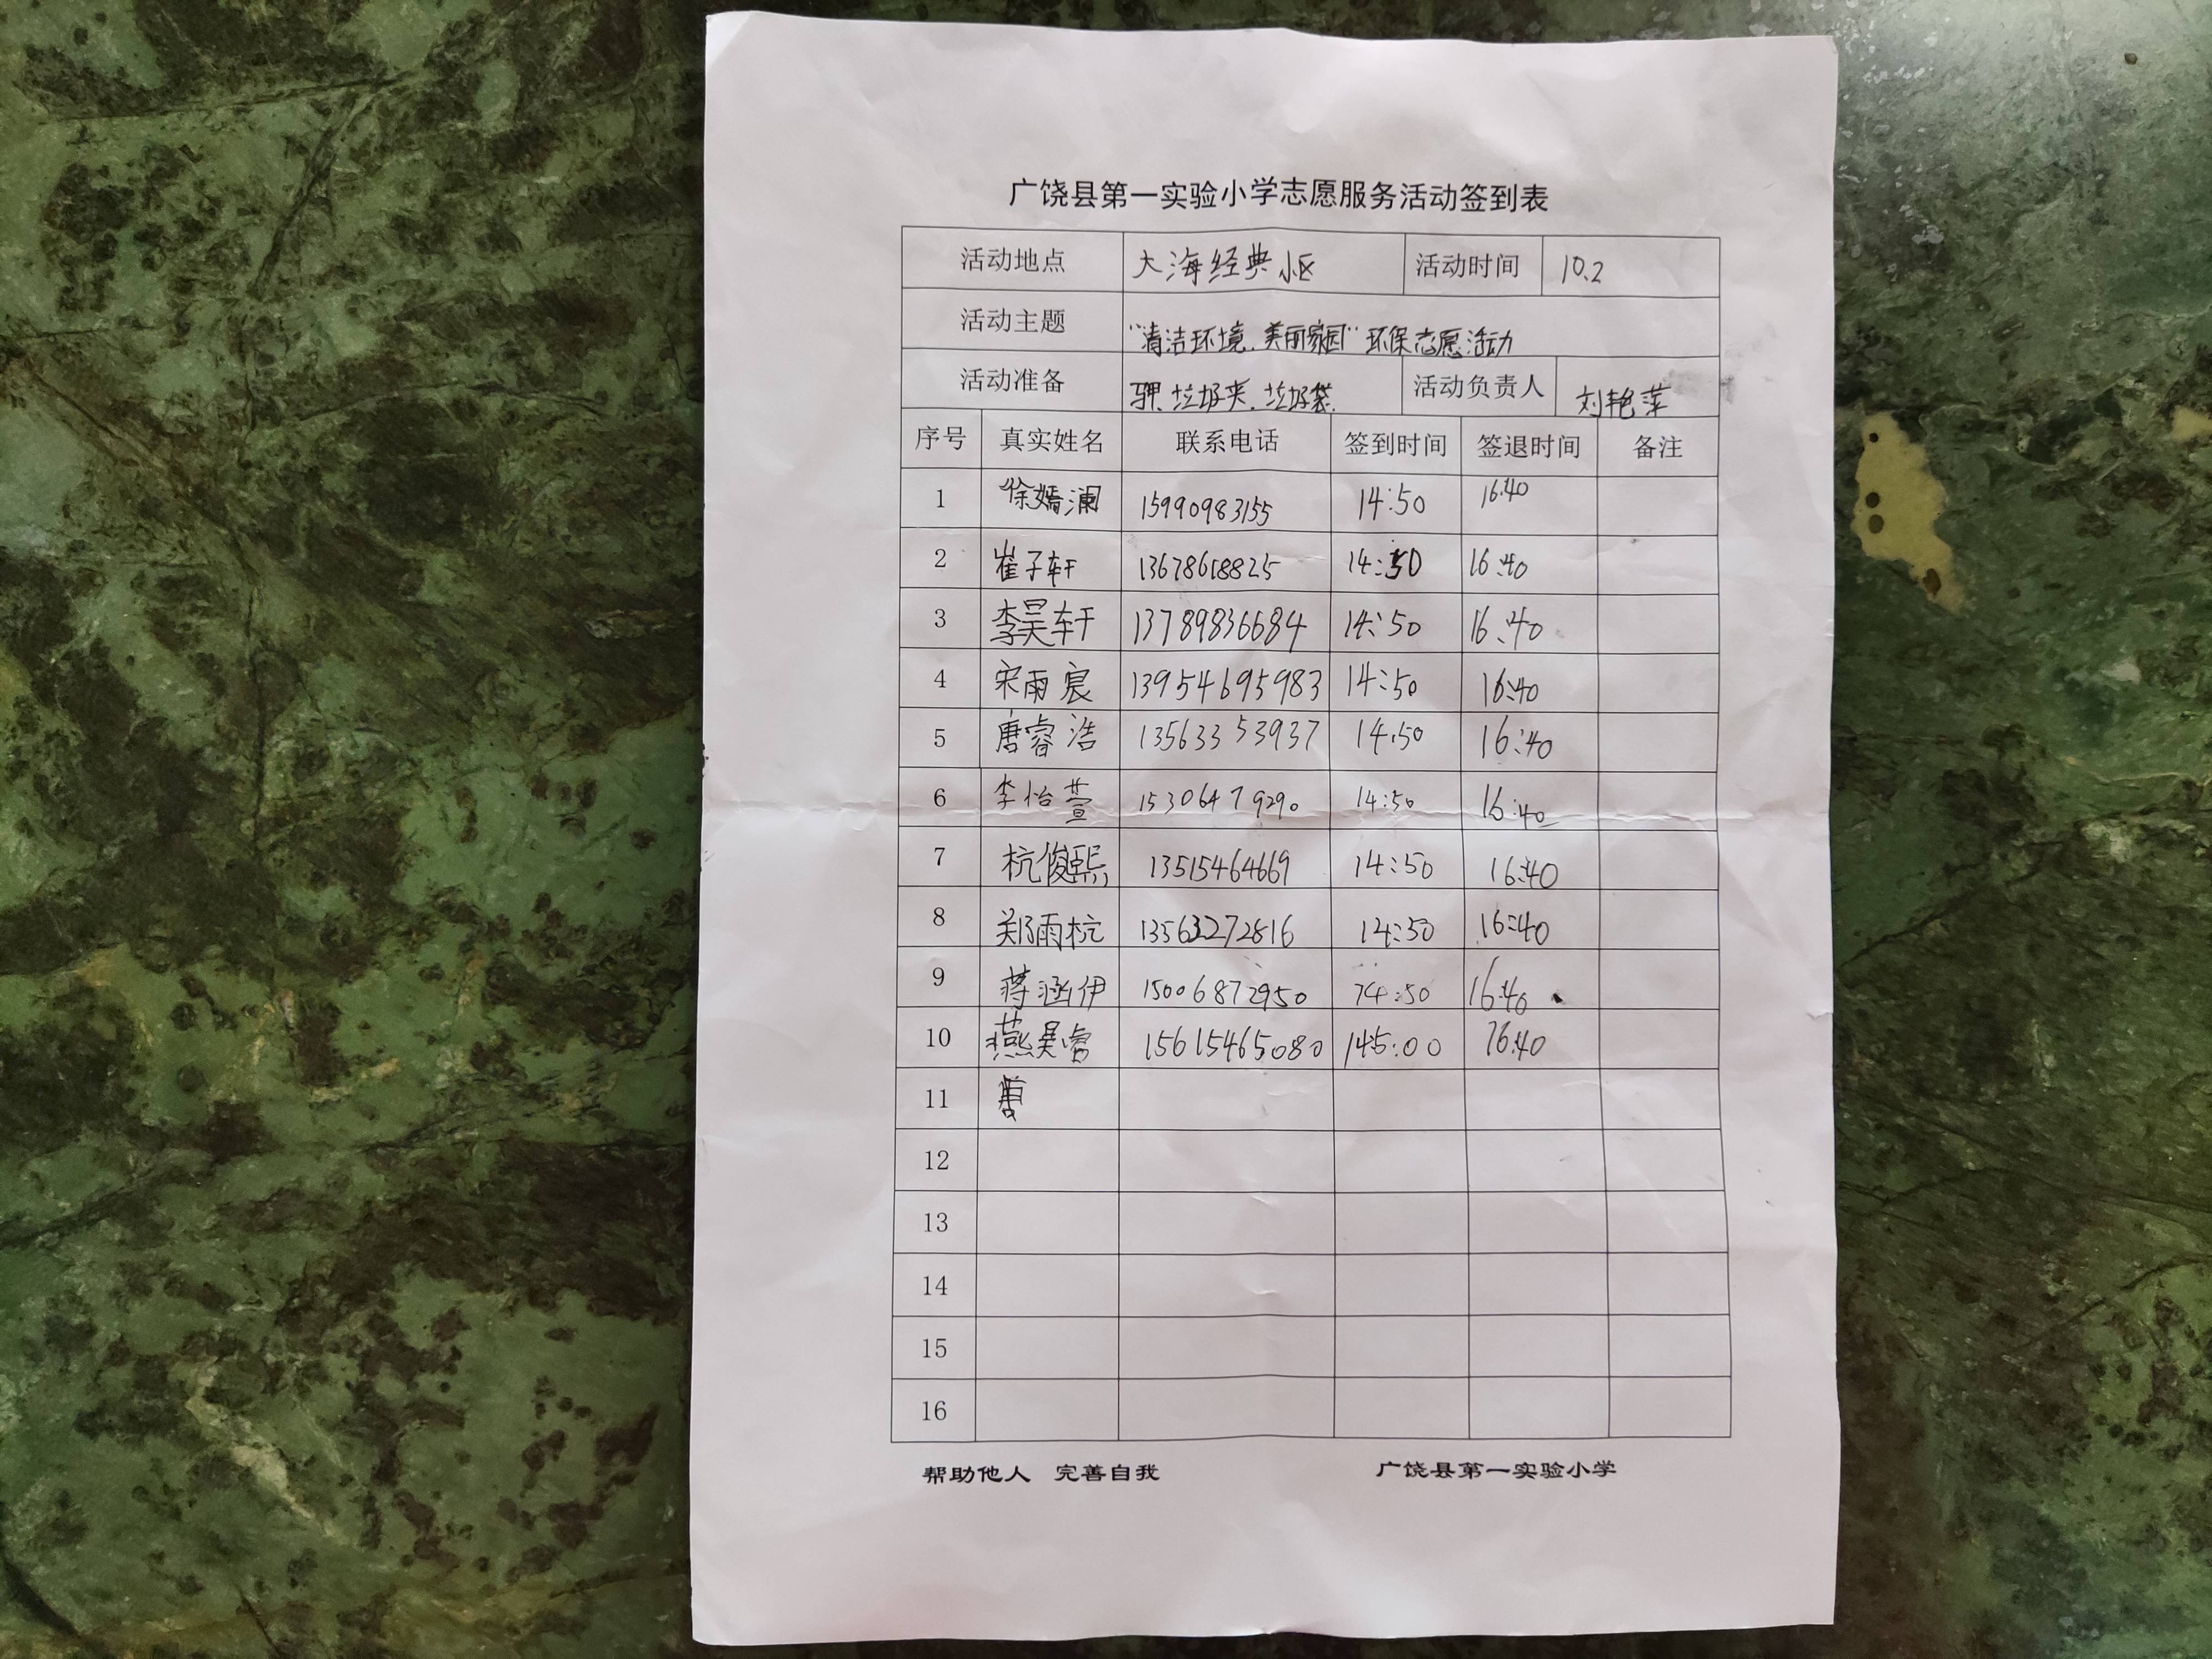 广饶县第一实验小学志愿服务活动签到表
活动地点 大海经典小区 活动时间 10.2
活动主题 “清洁环境.美丽家园”环保志愿活动
活动准备 垃圾夹.垃圾袋. 活动负责人 刘艳萍
序号 真实姓名 联系电话 签到时间 签退时间 备注
1 徐嫣澜 15990983155 14:50 16:40
2 崔子轩 13678618825 14:50 16:40
3 李昊轩 13789836684 14:50 16:40
4 宋雨宸 13954695983 14:50 16:40
5 唐睿浩 13563353937 14:50 16:40
6 李怡萱 15306479290 14:50 16:40
7 杭俊熙 13515464669 14:50 16:40
8 郑雨杭 13563272816 14:50 16:40
9 蒋涵伊 15006872950 14:50 16:40
10 燕昊睿 15615465080 145:00 16:40
11
12
13
14
15
16
帮助他人 完善自我 广饶县第一实验小学